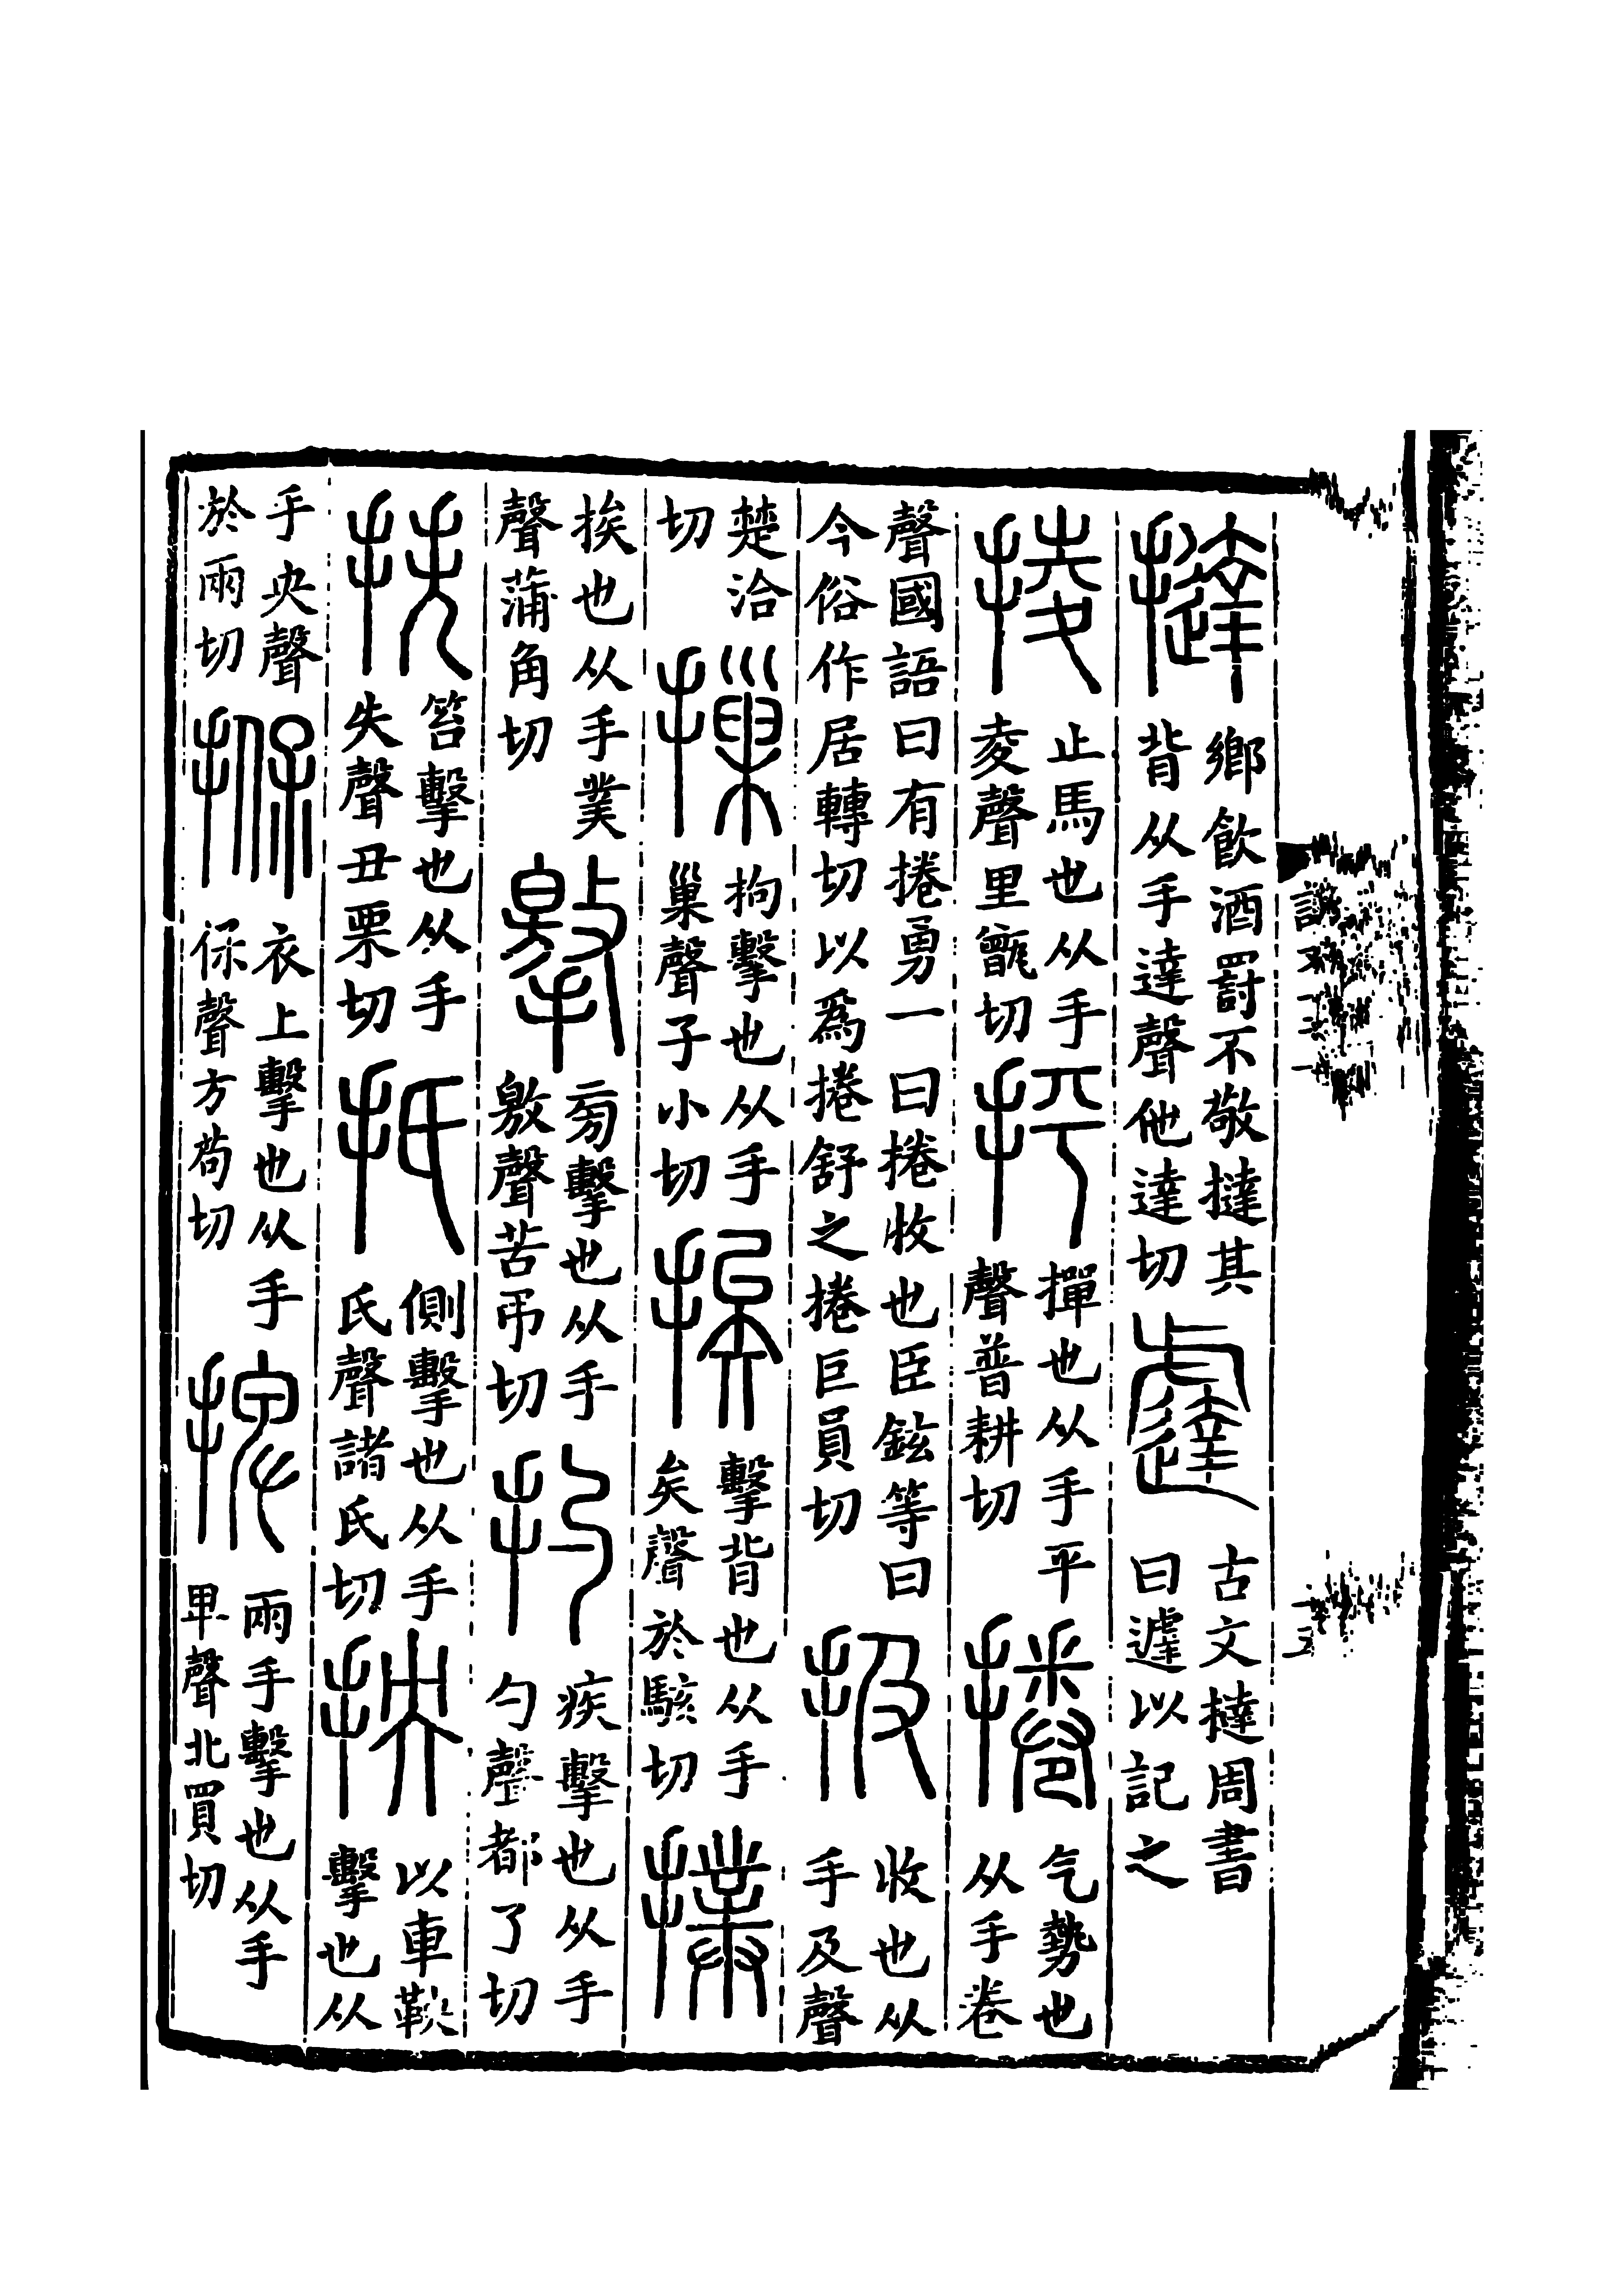 撻鄉飲酒罰不敬撻其背从手達聲他達切𨔶古文撻周書曰𨔶以記之
掕止馬也从手夌聲里甑切抨撣也从手平聲普耕切捲气勢也从手卷
聲國語曰有捲勇一曰捲收也臣鉉等曰今俗作居轉切以爲捲舒之捲巨員切扱收也从手及聲
楚洽切摷拘擊也从手巢聲子小切挨擊背也从手矣聲於駭切撲
挨也从手菐聲蒲角切撽㫄擊也从手敫聲苦弔切扚疾擊也从手勺聲都了切
抶笞擊也从手失聲丑栗切扺側擊也从手氏聲諸氏切抰以車鞅擊也从
手央聲於兩切㨐衣上擊也从手保聲方苟切捭兩手擊也从手卑聲北買切